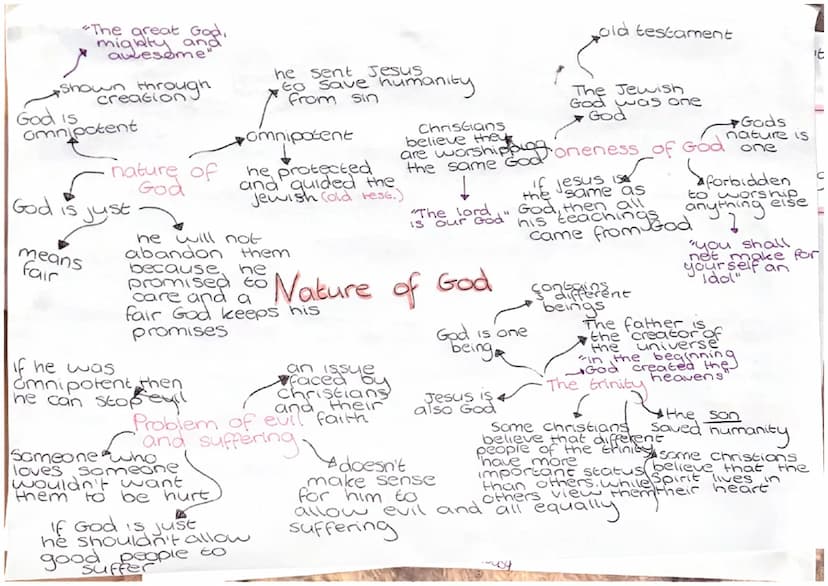 "The great God,
mighty and
awesome"
shown through
creation
God is
omnipotent
nature of
God
God is just
means
fair
he will not
abandon them
because he
promised to
care and a
fair God keeps his
promises
he sent Jesus
to save humanity
from sin
omnipotent
he protected
and guided the
jewish (old test.)
old testament
The Jewish
God was one
God
Christians
believe they
are worshipping
the same God
"The lord
is our God"
oneness of God
Gods
nature is
one
if Jesus is
the same as
God, then all
his teachings
came from God
forbidden
to worship
anything else
"you shall
not make for
yourself an
idol"
Nature of God
contains
3 different
beings
God is one
being
The father is
the creator of
the universe
"in the beginning
God created the
heavens"
The trinity
Jesus is
also God
Some christians
believe that different
people of the trinity
have more
important status
than others while
others view them
all equally
the son
saved humanity
some christians
believe that the
spirit lives in
their heart
if he was
omnipotent then
he can stop evil
an issue
faced by
christians
and their
faith
Problem of evil
and suffering
someone who
loves someone
wouldn't want
them to be hurt
doesn't
make sense
for him to
allow evil and
suffering
if God is just
he shouldn't allow
good people to
suffer